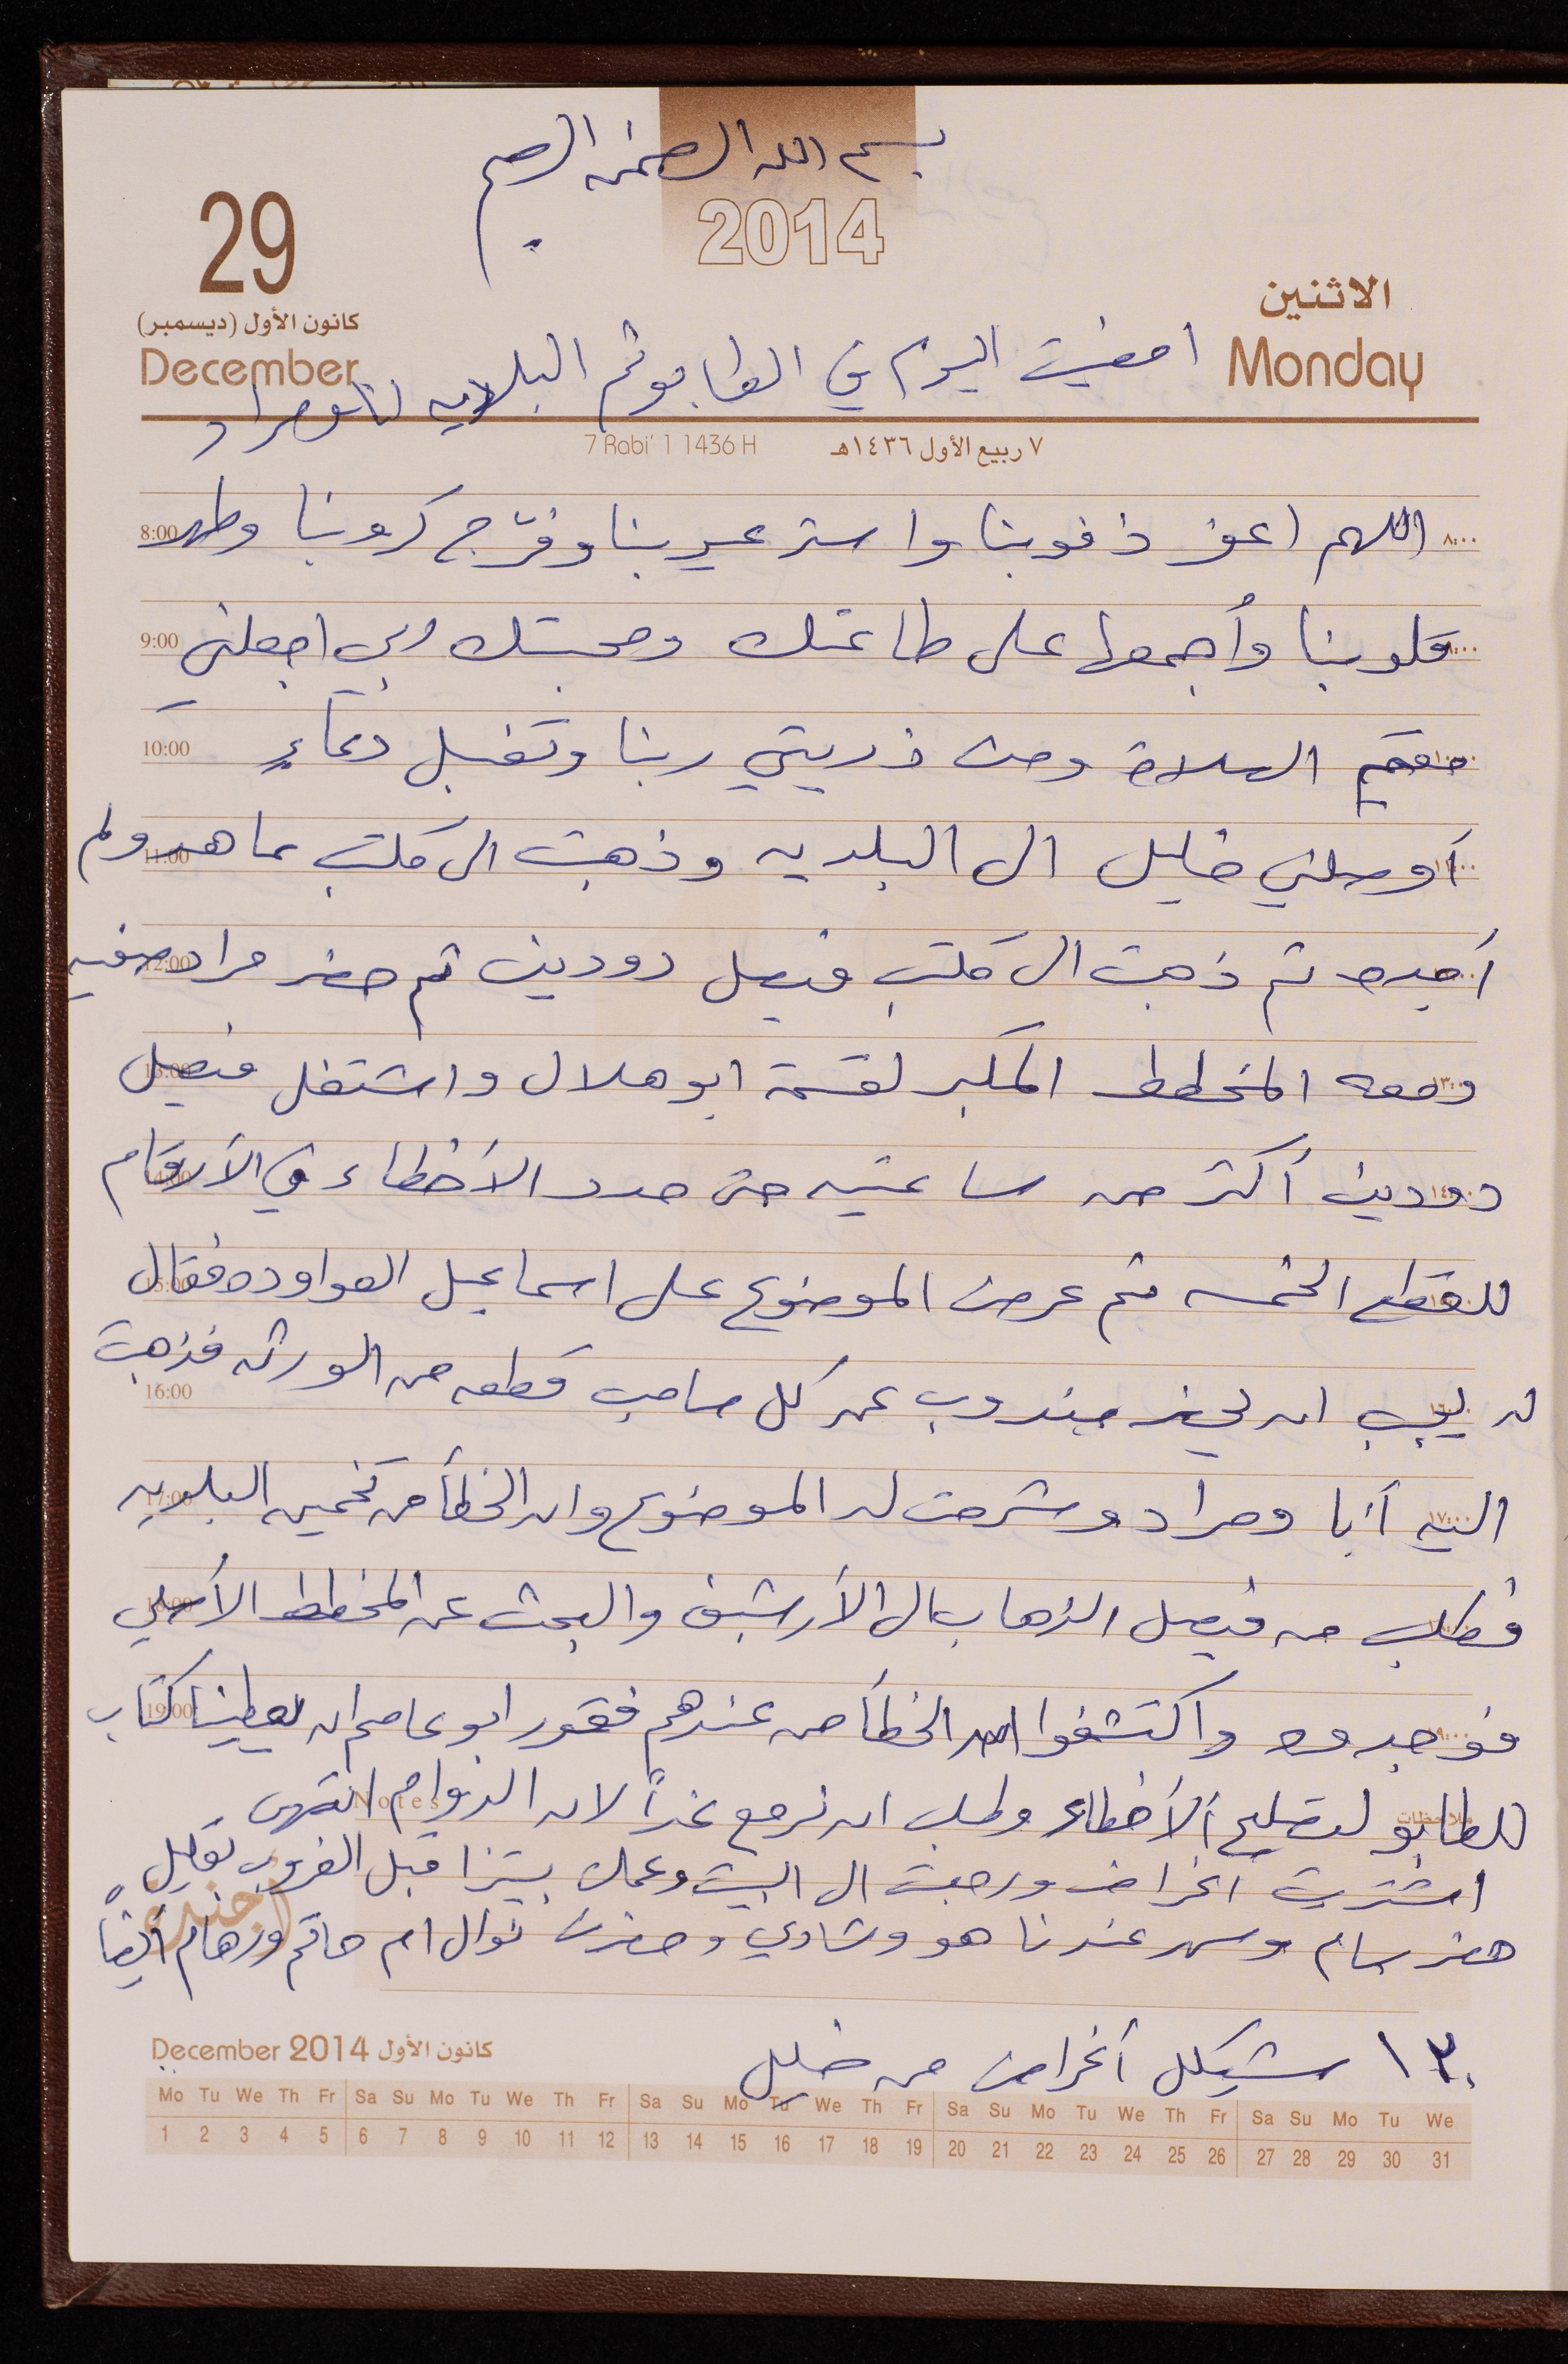 بسم الله الرحمن الرحيم
2014
29
كانون الأول (ديسمبر)
December
الاثنين
Monday
امضيت اليوم في الطابو ثم البلديه انا ومراد
7 Rabi' 1 1436 H
٧ ربيع الأول ١٤٣٦هـ
8:00 اللهم اغفر ذنوبنا واستر عيوبنا وفرّج كروبنا وطهر ٨:٠٠
9:00 قلوبنا وأجمعها على طاعتك ومحبتك ربي اجعلني
10:00 مقيم الصلاة ومن ذريتي ربنا وتقبل دعاء ١٠:٠٠
11:00 أوصلني خليل الى البلديه وذهبت الى مكتب ماهر ولم ١١:٠٠
12:00 أجده ثم ذهبت الى مكتب فيصل دودين ثم حضر مراد صفيه
13:00 ومعه المخطط المكبر لقسمة ابو هلال واشتغل فيصل ١٣:٠٠
14:00 دودين أكثر من ساعتيه حتى حدد الأخطاء في الأرقام ١٤:٠٠
15:00 للقطع الخمسه ثم عرض الموضوع على اسماعيل العواوده فقال
16:00 له يجب ان يحضر مندوب عن كل صاحب قطعه من الورثه فذهبت
17:00 اليه أنا ومراد وشرحت له الموضوع وان الخطأ من تخمين البلديه ١٧:٠٠
18:00 فطلب من فيصل الذهاب الى الأرشيف والبحث عن المخطط الأصلي
19:00 فوجدوه واكتشفوا ان الخطأ من عندهم فقرر ابو عاصم ان يعطينا كتاب ١٩:٠٠
Notes للطابو لتصليح الأخطاء وطلب ان نرجع غداً لان الدوام انتهى ملاحظات
اشتريت أغراض ورجعت الى البيت وعملت بيتزا قبل الغروب بقليل
حضر بسام وسهر عندنا هو وشادي وحضرت نوال ام حاتم ورهام أيضاً
أجندة
١٣٠ شيكل أغراض من خليل
December 2014 كانون الأول
Mo Tu We Th Fr Sa Su Mo Tu We Th Fr Sa Su Mo Tu We Th Fr Sa Su Mo Tu We Th Fr Sa Su Mo Tu We
1 2 3 4 5 6 7 8 9 10 11 12 13 14 15 16 17 18 19 20 21 22 23 24 25 26 27 28 29 30 31